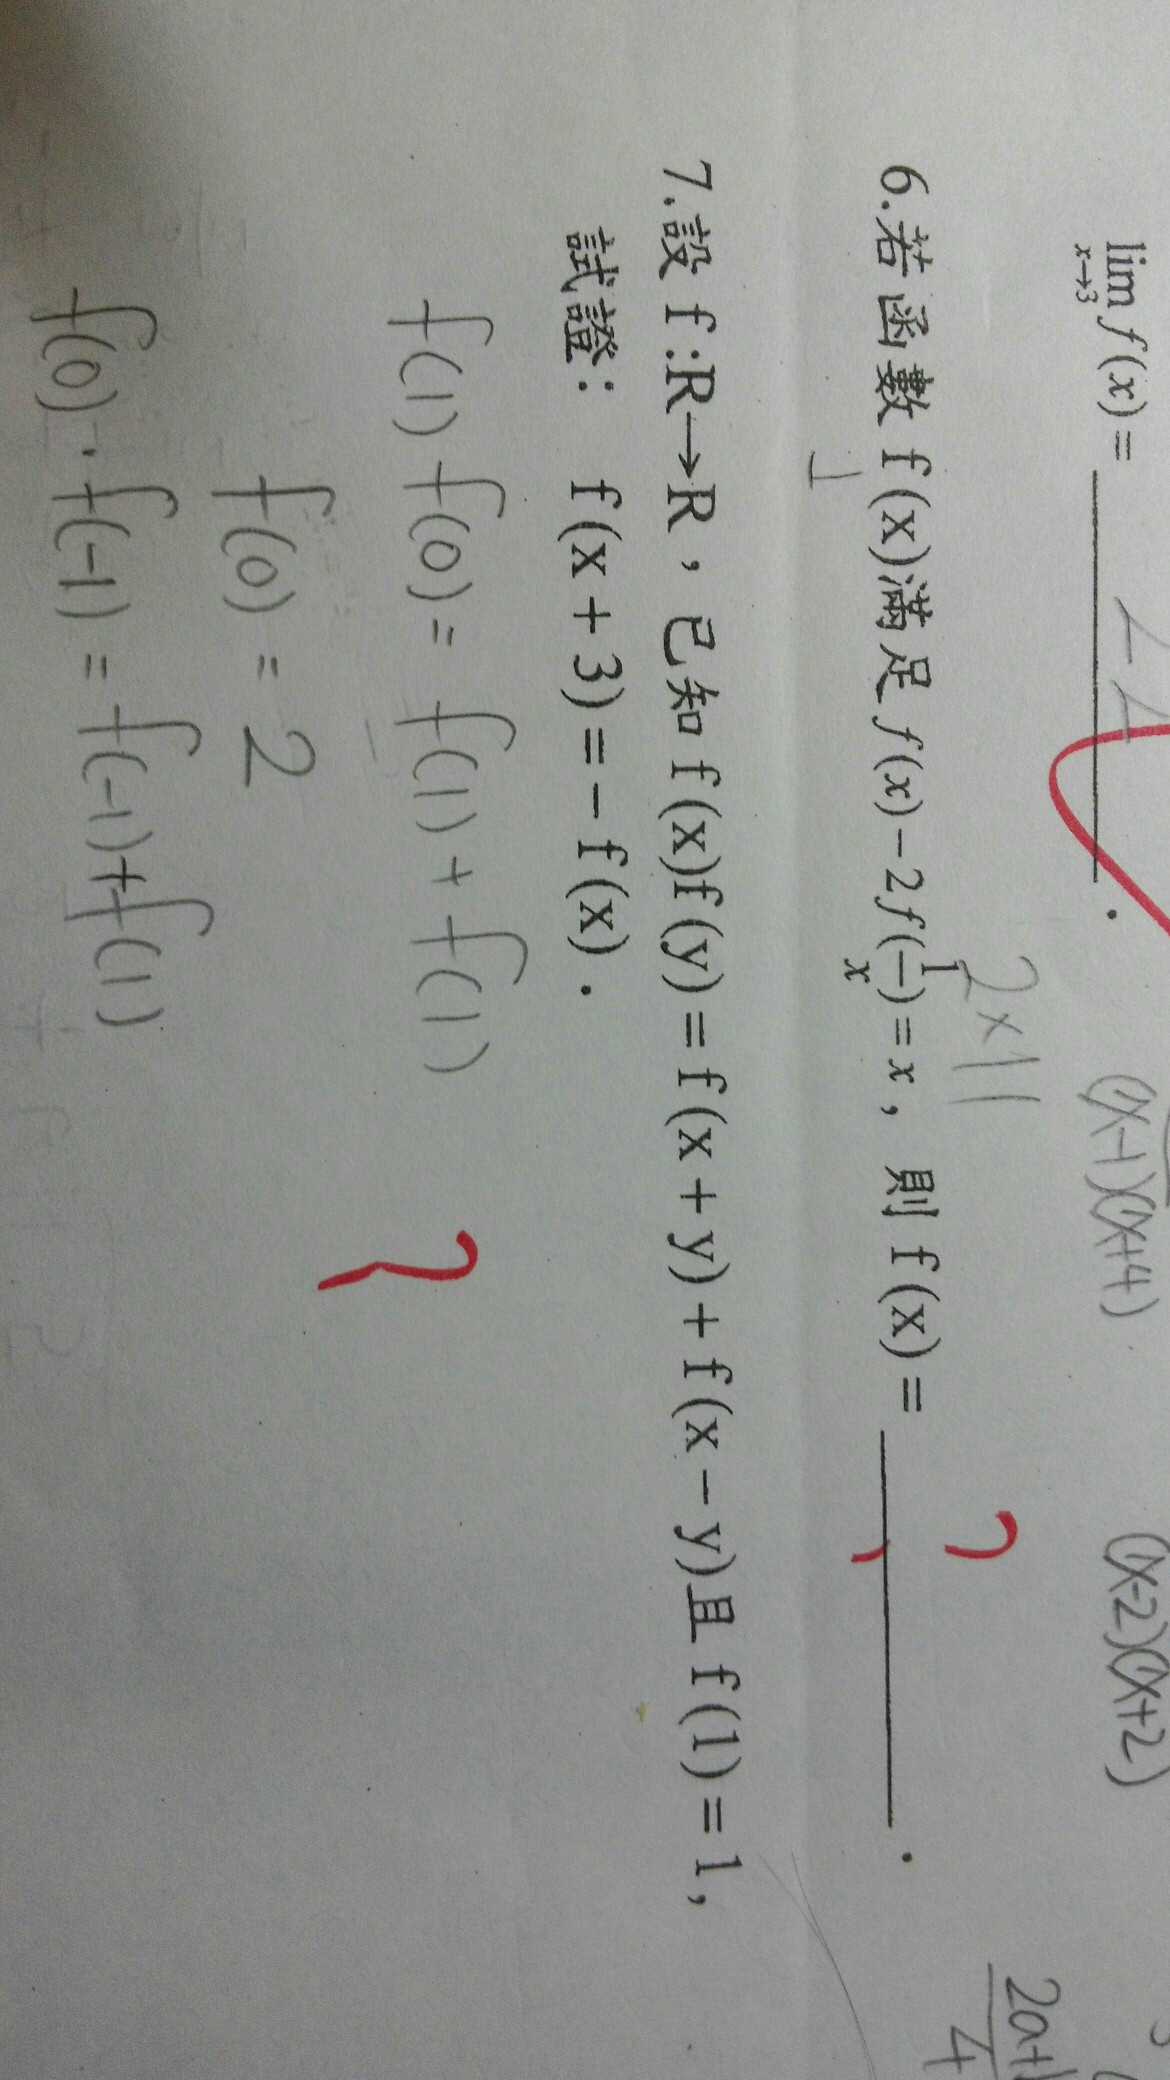 lim f(x) = ______.
x→3
(x-1)(x+4)
(x-2)(x+2)
2×11
2a+1
4
6.若函數 f(x)滿足 f(x)-2f(1/x)=x, 則 f(x) = ______.
7.設 f:R→R, 已知 f(x)f(y)=f(x+y)+f(x-y)且 f(1)=1,
試證: f(x+3)=-f(x).
f(1)f(0)= f(1)+f(1)
f(0) = 2
f(0)·f(-1) = f(-1)+f(1)